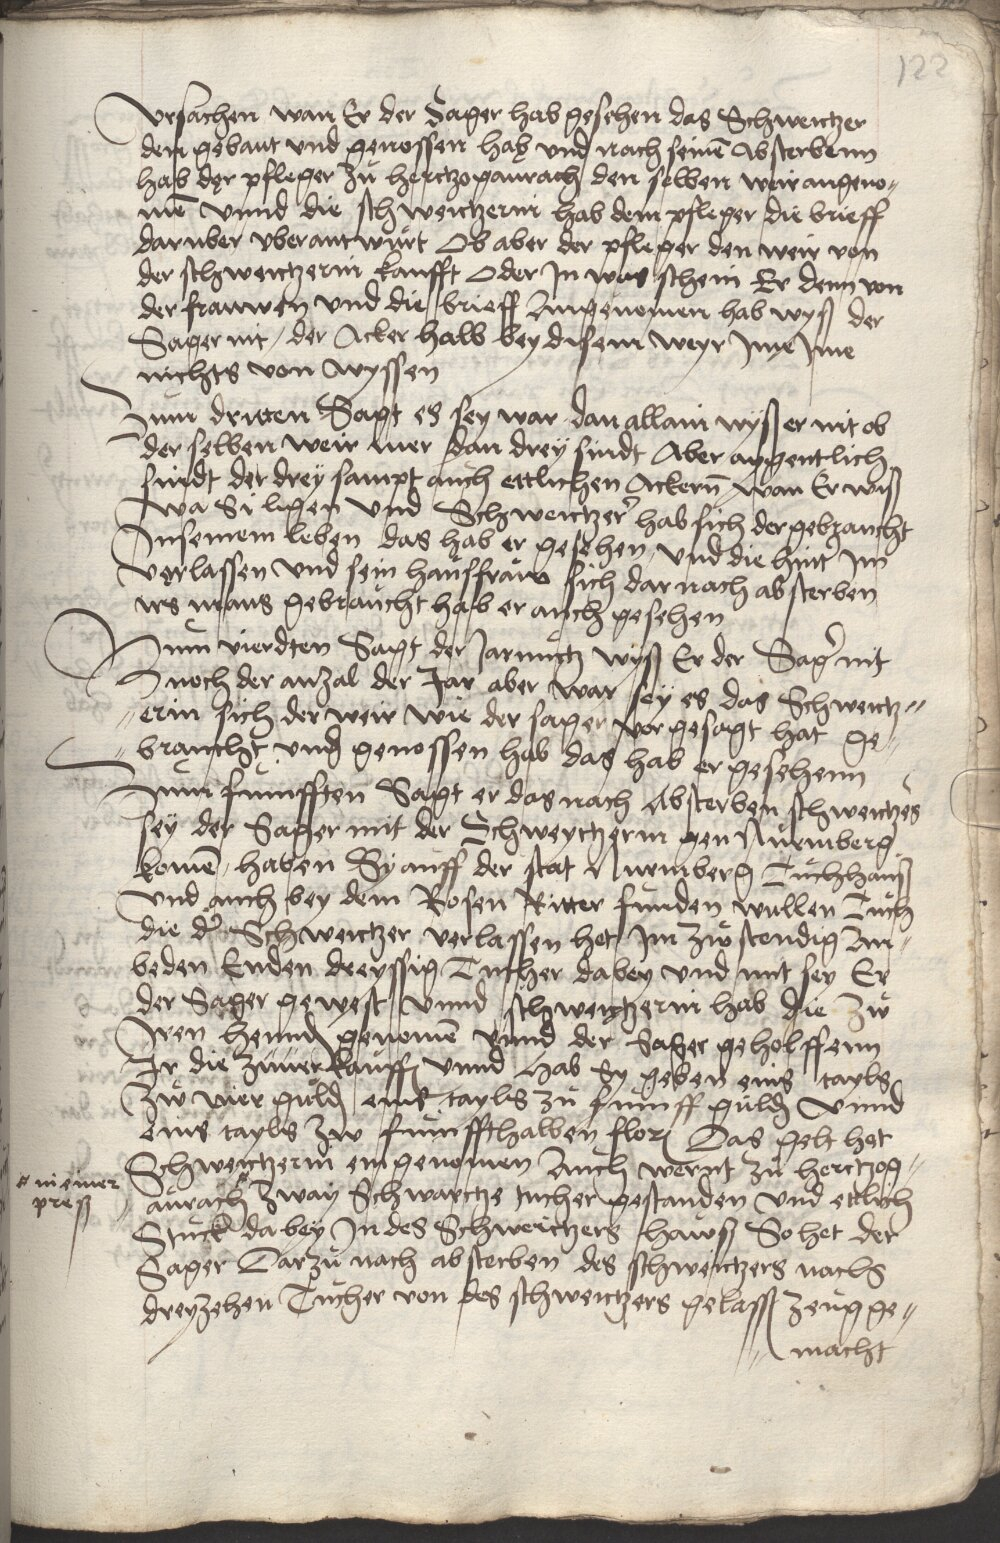 122
Ursachen wan Er der Sager hab gesehen das Schweitzer
den gebaut und genossen hab und nach seinē Absterbenn
hab der pfleger zu hertzogaurach den selben weir angeno-
mē unnd die schweitzerin hab dem pfleger die brieff
daruber uberantwurt Ob aber der pfleger den weir von
der schweitzerin kaufft Oder Jn was schein Er denn von
der frauwen und die brieff Angenomen hab wyß der
Sager nit / der Acker halb bey disem weyr sey Jme
nichts von wyssen
Zum dritten Sagt es sey war dan allain wyß er nit ob
der selben weir mer dan drey sindt Aber aygentlich
sindt der drey sampt auch ettlichen Ackern wan Er wiß
wa Si ligen und Schweitzer hab sich der gebraucht
Jn seinem leben das hab er gesehen und die hint Jm
verlassen und sein hausfrauw sich dar nach absterben
irs mans gebraucht hab er auch gesehen
Zum vierdten Sagt der Jarnutz wyß Er der Sager nit
noch der anzal der Jar aber war sey es das Schweitz-
erin sich der weir wie der sager vor gesagt hat ge-
braucht und genossen hab das hab er gesehenn
Zum funfften Sagt er das nach Absterben schweitzers
sey der Sager mit der Schweytzerin gen Nurmberg
komē / haben Sy auff der stat Nurmberg Tuchhauß
und auch bey dem Rosen Ritter funden wullen Tuch
die der Schweitzer verlassen het Jm zustendig An
beden Enden dreyssig Tucher dabey und mit sey Er
der Sager gewest unnd schweitzerin hab die zu
Jren henndn genomē unnd der Sager geholffenn
Jr die zuverkauffn unnd hab Sy geben eins tayls
zu vier guldn eins tayls zu funff guldn unnd
eins tayls zw funffthalben flor Das gelt het
Schweitzerin eingenomen Auch wernt zu hertzog-
aurach zway Schwartze tucher gestanden und ettlich
in einer
preß
Stuck da bey Jn des Schweitzers hawß So het der
Sager Darzu nach absterben des schweitzers nochs
dreyzehen Tucher von des schweitzers gelassn zeug ge-
macht